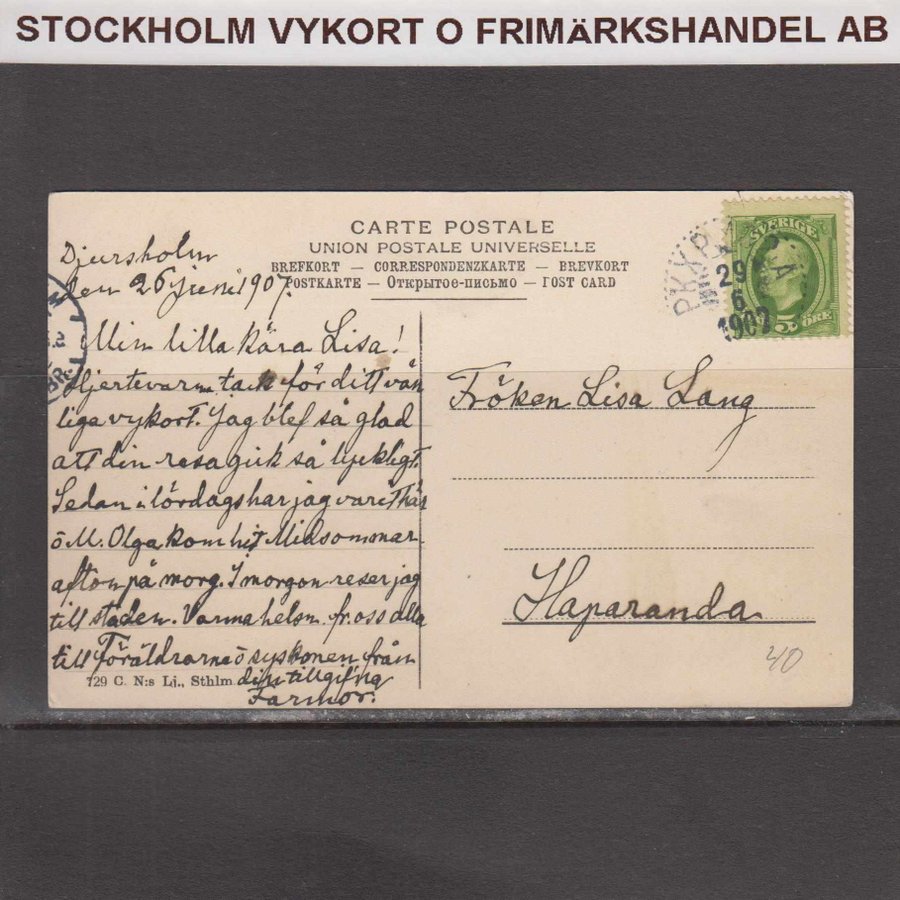 STOCKHOLM VYKORT O FRIMÄRKSHANDEL AB
CARTE POSTALE
UNION POSTALE UNIVERSELLE
BREFKORT — CORRESPONDENZKARTE — BREVKORT
POSTKARTE — Открытое-письмо — POST CARD
SVERIGE
5 ÖRE
PKXP
29
6
1907
Djursholm
den 26 juni 1907.
Min lilla kära Lisa!
Hjertevarm tack för ditt vän
liga vykort. Jag blef så glad
att din resa gick så lyckligt.
Sedan i lördags har jag varit här
o M. Olga kom hit Midsommar-
afton på morg. I morgon reser jag
till staden. Varma helsn. fr. oss alla
till Föräldrarne o syskonen från
din tillgifna
Farmor.
729 C. N:s Lj., Sthlm.
Fröken Lisa Lang
Haparanda
40